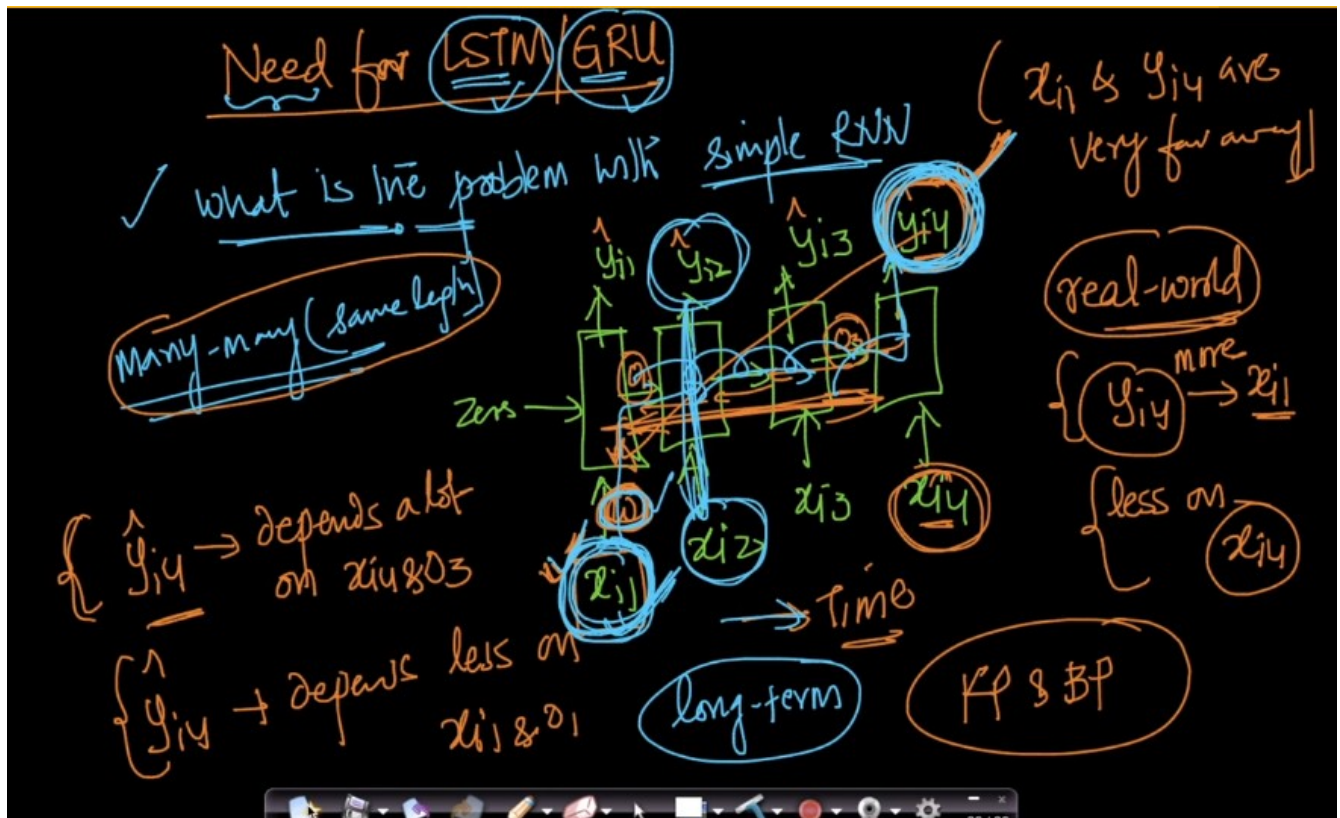 Need for LSTM/GRU
( xi1 & yi4 are
very far away)
✓ what is the problem with simple RNN
Many-many (same length)
ŷi1 ŷi2 ŷi3 yi4
real-world
{ yi4 more → xi1
{ less on xi4
O1 O3
Zeros →
xi1 xi2 xi3 xi4
{ ŷi4 → depends a lot
on xi4 & O3
{ ŷi4 → depends less on
xi1 & O1
→ Time
long-term
FP & BP